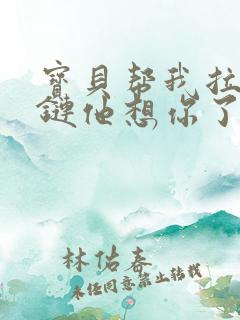 寶貝帮我拉
鏈他想你了
林佑春
未经同意禁止转载